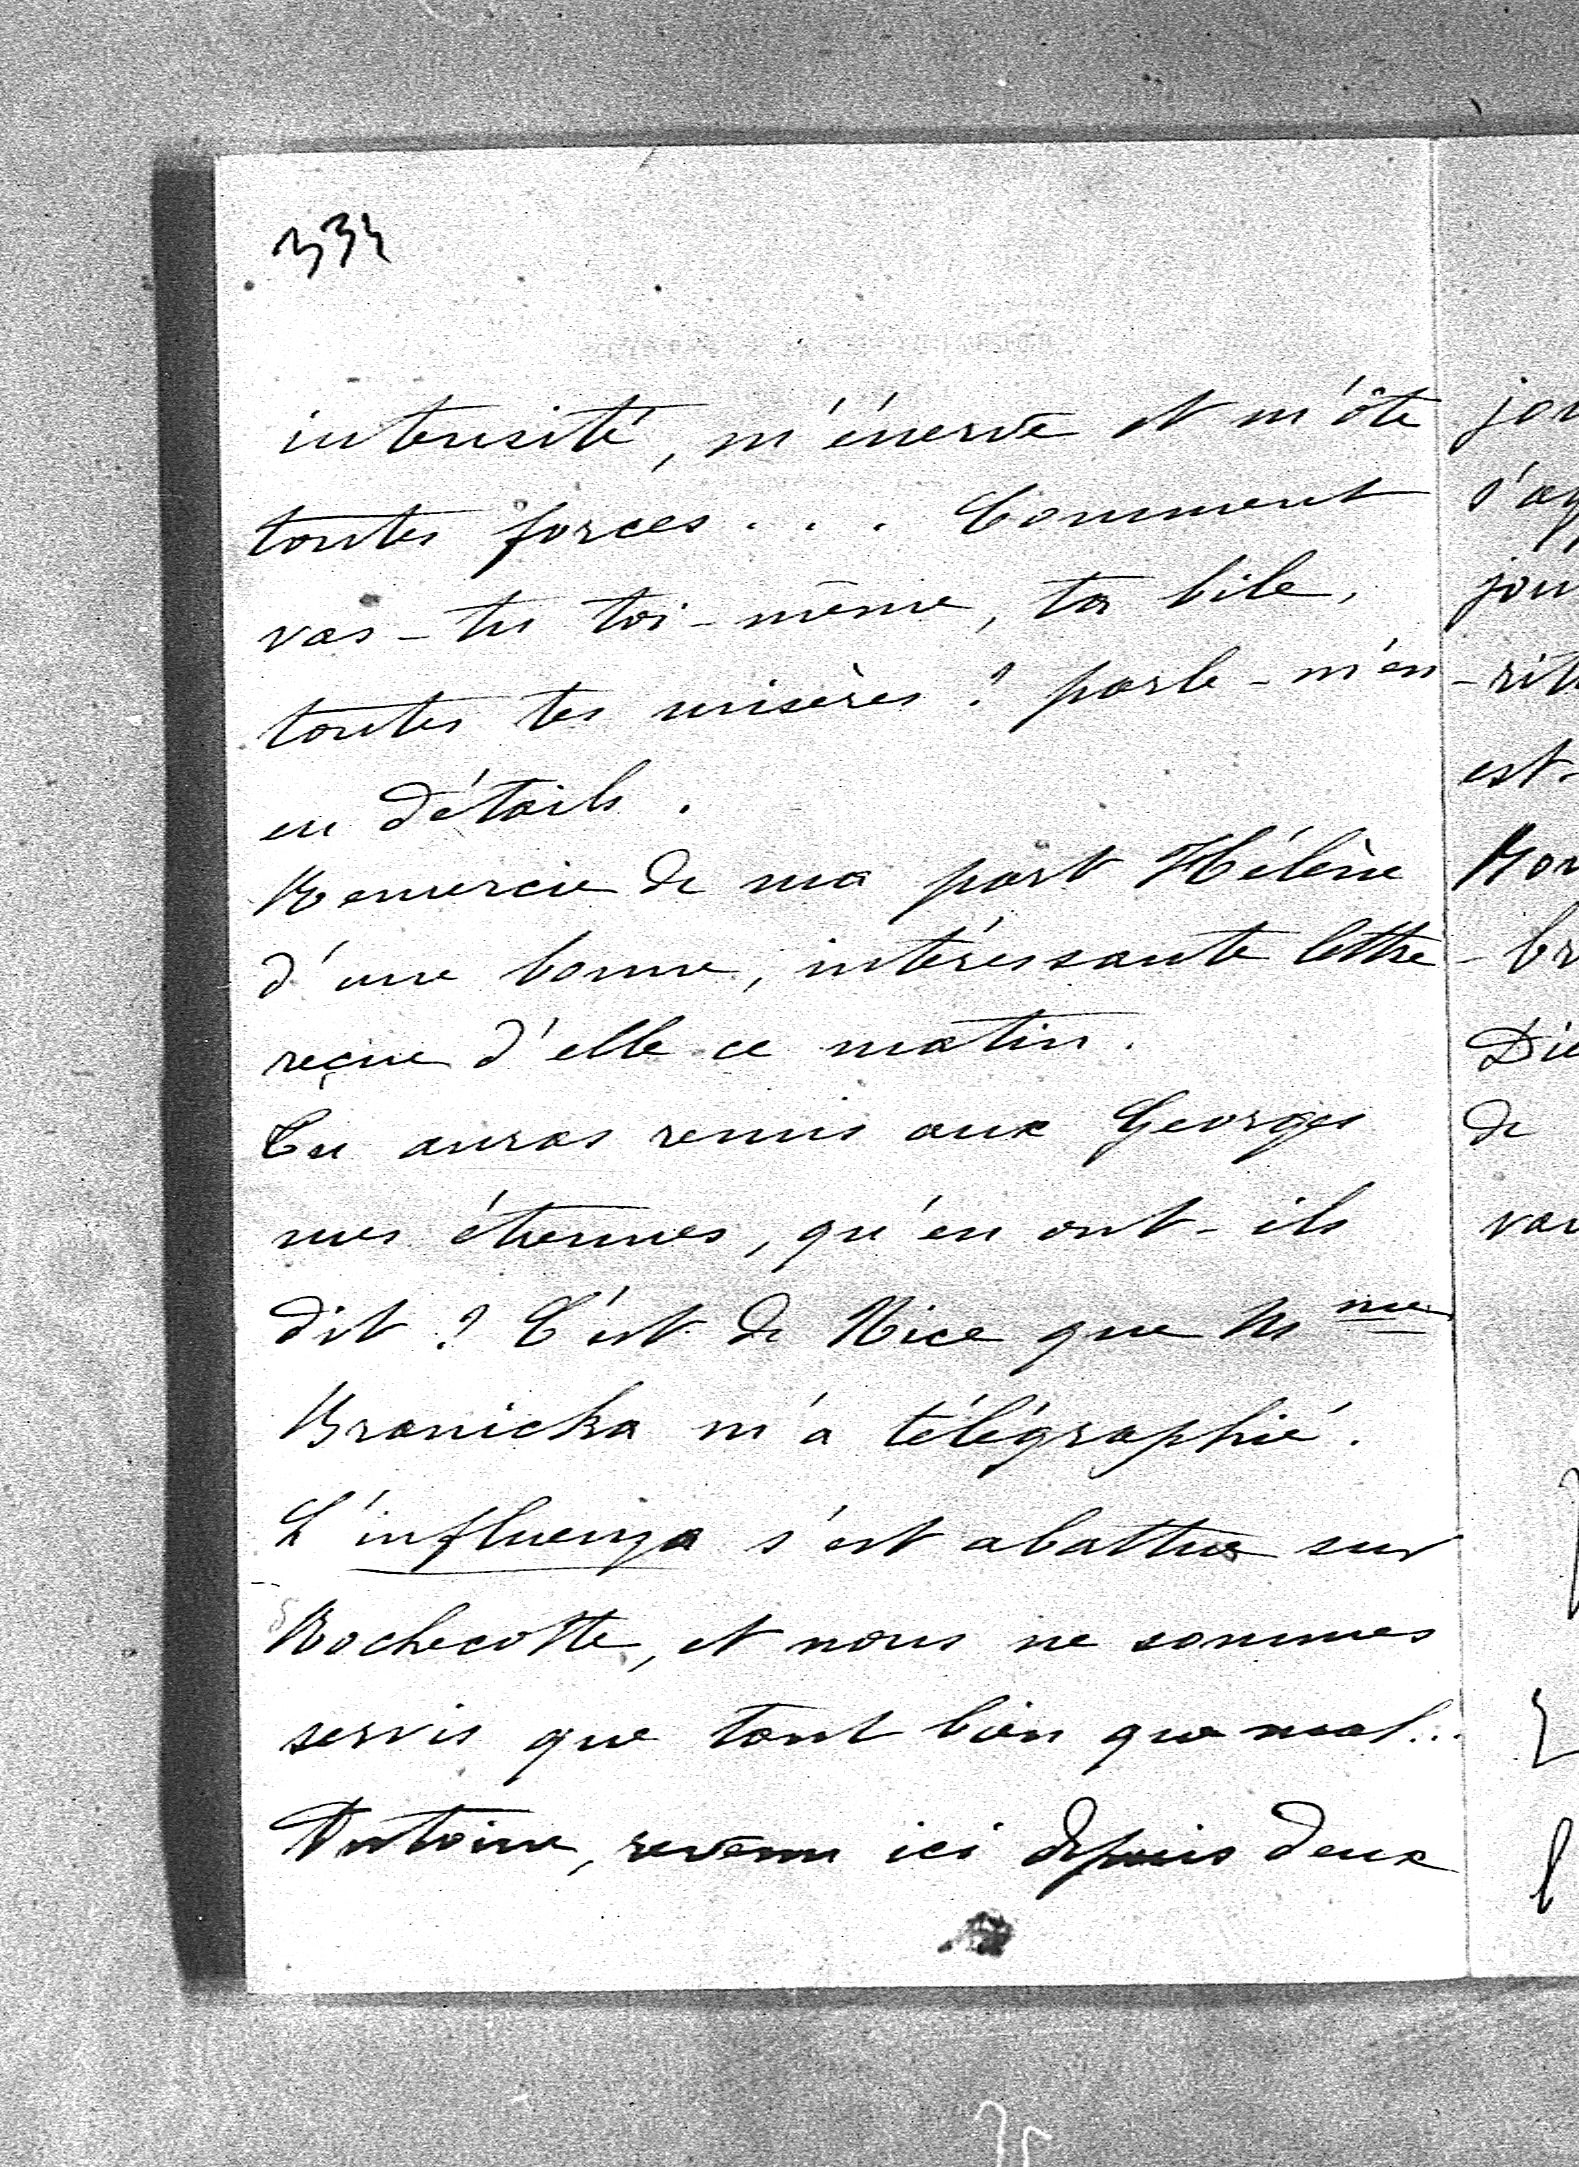 334
intensité, m'énerve et m'ôte
toutes forces... Comment
vas-tu toi-même, ta bile,
toutes tes misères? parle-m'en
en détails.
Remercie de ma part Hélène
d'une bonne, intéressante lettre
reçue d'elle ce matin.
Tu auras remis aux Georges
mes étrennes, qu'en ont-ils
dit? C'est de Nice que Mme
Branicka m'a télégraphié.
L'influenza s'est abattue sur
Rochecotte, et nous ne sommes
servis que tant bien que mal...
Antoine, revenu ici depuis deux